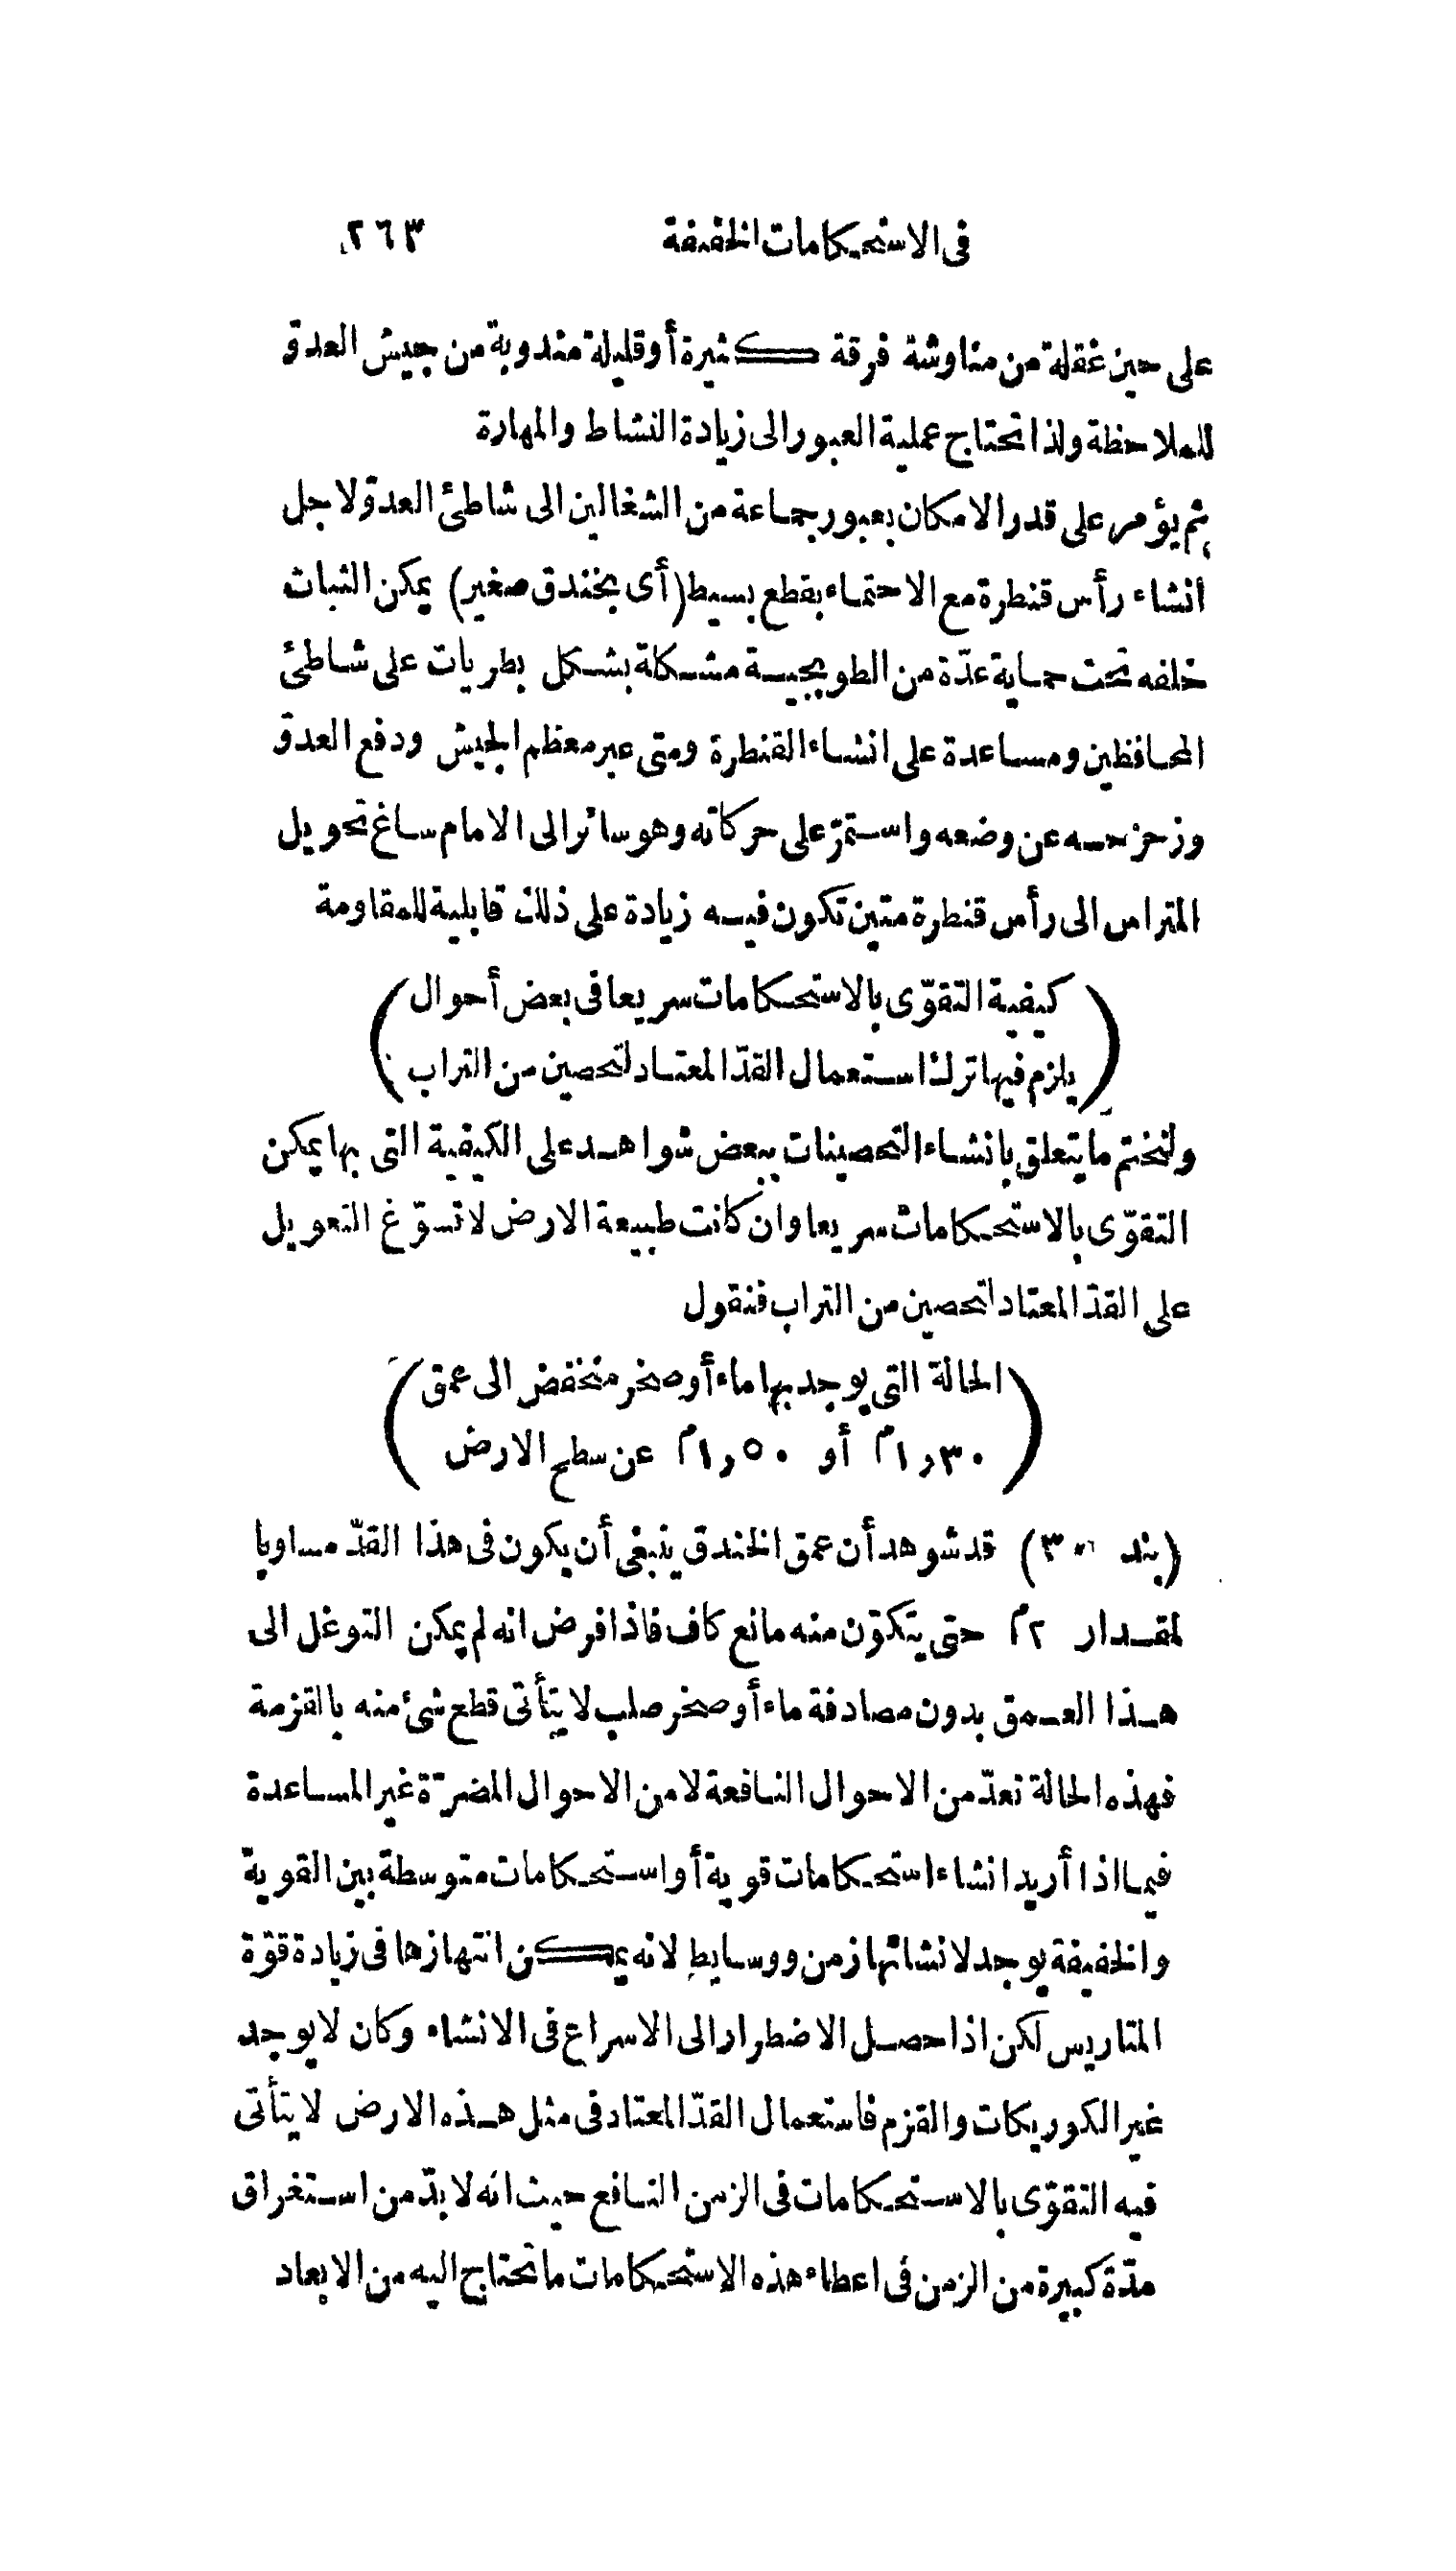 فى الاستحكامات الخفيفة ٢٦٣
على حين غفلة من مناوشة فرقة كثيرة أو قليلة مندوبة من جيش العدوّ
للملاحظة ولذا تحتاج عملية العبور الى زيادة النشاط والمهارة
ثم يؤمر على قدر الامكان بعبور جماعة من الشغالين الى شاطئ العدوّ لاجل
انشاء رأس قنطرة مع الاحتماء بقطع بسيط (أى بخندق صغير) يمكن الثبات
خلفه تحت حماية عدّة من الطوبجية مشكلة بشكل بطريات على شاطئ
المحافظين ومساعدة على انشاء القنطرة ومتى عبر معظم الجيش ودفع العدوّ
وزحزحه عن وضعه واستمرّ على حركاته وهو سائر الى الامام ساغ تحويل
المتراس الى رأس قنطرة متين تكون فيه زيادة على ذلك قابلية للمقاومة
(كيفية التقوّى بالاستحكامات سريعا فى بعض أحوال
يلزم فيها ترك استعمال القدّ المعتاد لتحصين من التراب)
ولنختم ما يتعلق بانشاء التحصينات ببعض شواهد على الكيفية التى بها يمكن
التقوّى بالاستحكامات سريعا وان كانت طبيعة الارض لا تسوّغ التعويل
على القدّ المعتاد لتحصين من التراب فنقول
(الحالة التى يوجد بها ماء أو صخر منخفض الى عمق
١,٣٠م أو ١,٥٠م عن سطح الارض)
(بند ) قد شوهد أن عمق الخندق ينبغى أن يكون فى هذا القدّ مساويا
لمقدار ٢م حتى يتكوّن منه مانع كاف فاذا فرض انه لم يمكن التوغل الى
هذا العمق بدون مصادفة ماء أو صخر صلب لا يتأتى قطع شئ منه بالقزمة
فهذه الحالة تعدّ من الاحوال النافعة لا من الاحوال المضرّة غير المساعدة
فيما اذا أريد انشاء استحكامات قوية أو استحكامات متوسطة بين القوية
والخفيفة يوجد لانشائها زمن ووسايط لانه يمكن انتهازها فى زيادة قوّة
المتاريس لكن اذا حصل الاضطرار الى الاسراع فى الانشاء وكان لا يوجد
غير الكوريكات والقزم فاستعمال القدّ المعتاد فى مثل هذه الارض لا يتأتى
فيه التقوّى بالاستحكامات فى الزمن النافع حيث انه لا بدّ من استغراق
مدّة كبيرة من الزمن فى اعطاء هذه الاستحكامات ما تحتاج اليه من الابعاد